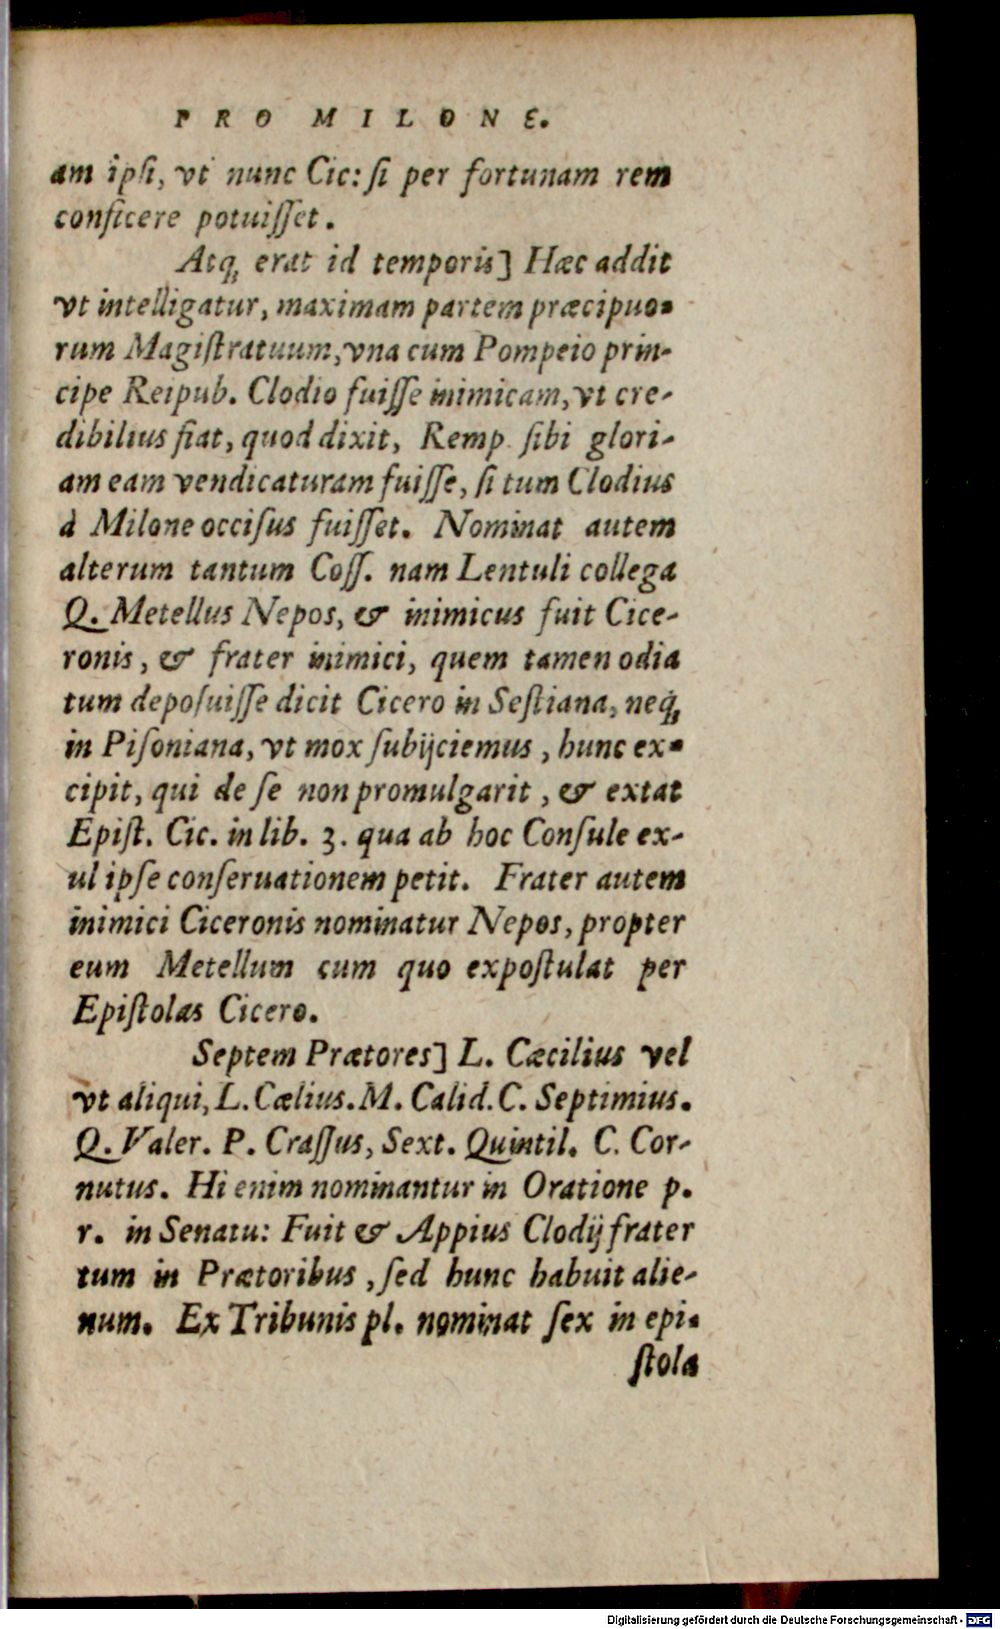 PRO MILONE.
am ipſi, vt nunc Cic: ſi per fortunam rem
conficere potuiſſet.
Atq́; erat id temporis] Hæc addit
vt intelligatur, maximam partem præcipuo-
rum Magiſtratuum, vna cum Pompeio prin-
cipe Reipub. Clodio fuiſſe inimicam, vt cre-
dibilius fiat, quod dixit, Remp. ſibi glori-
am eam vendicaturam fuiſſe, ſi tum Clodius
à Milone occiſus fuiſſet. Nominat autem
alterum tantum Coſſ. nam Lentuli collega
Q. Metellus Nepos, & inimicus fuit Cice-
ronis, & frater inimici, quem tamen odia
tum depoſuiſſe dicit Cicero in Seſtiana, neq́;
in Piſoniana, vt mox ſubijciemus, hunc ex-
cipit, qui de ſe non promulgarit, & extat
Epiſt. Cic. in lib. 3. qua ab hoc Conſule ex-
ul ipſe conſeruationem petit. Frater autem
inimici Ciceronis nominatur Nepos, propter
eum Metellum cum quo expoſtulat per
Epiſtolas Cicero.
Septem Prætores] L. Cæcilius vel
vt aliqui, L. Cælius. M. Calid. C. Septimius.
Q. Valer. P. Craſſus, Sext. Quintil. C. Cor-
nutus. Hi enim nominantur in Oratione p.
r. in Senatu: Fuit & Appius Clodij frater
tum in Prætoribus, ſed hunc habuit alie-
num. Ex Tribunis pl. nominat ſex in epi-
ſtola
Digitalisierung gefördert durch die Deutsche Forschungsgemeinschaft - DFG